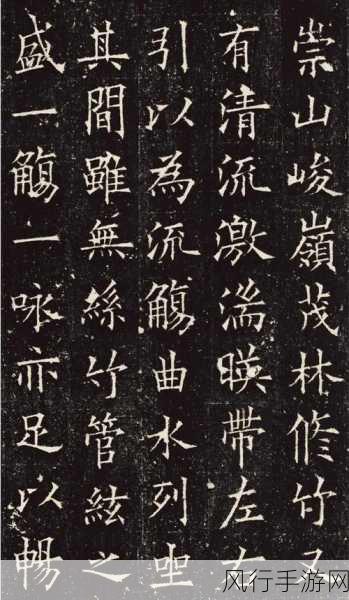 崇山峻嶺茂林修竹又
有清流激湍暎帶左右
引以為流觴曲水列坐
其間雖無絲竹管絃之
盛一觴一咏亦足以暢
风行手游网